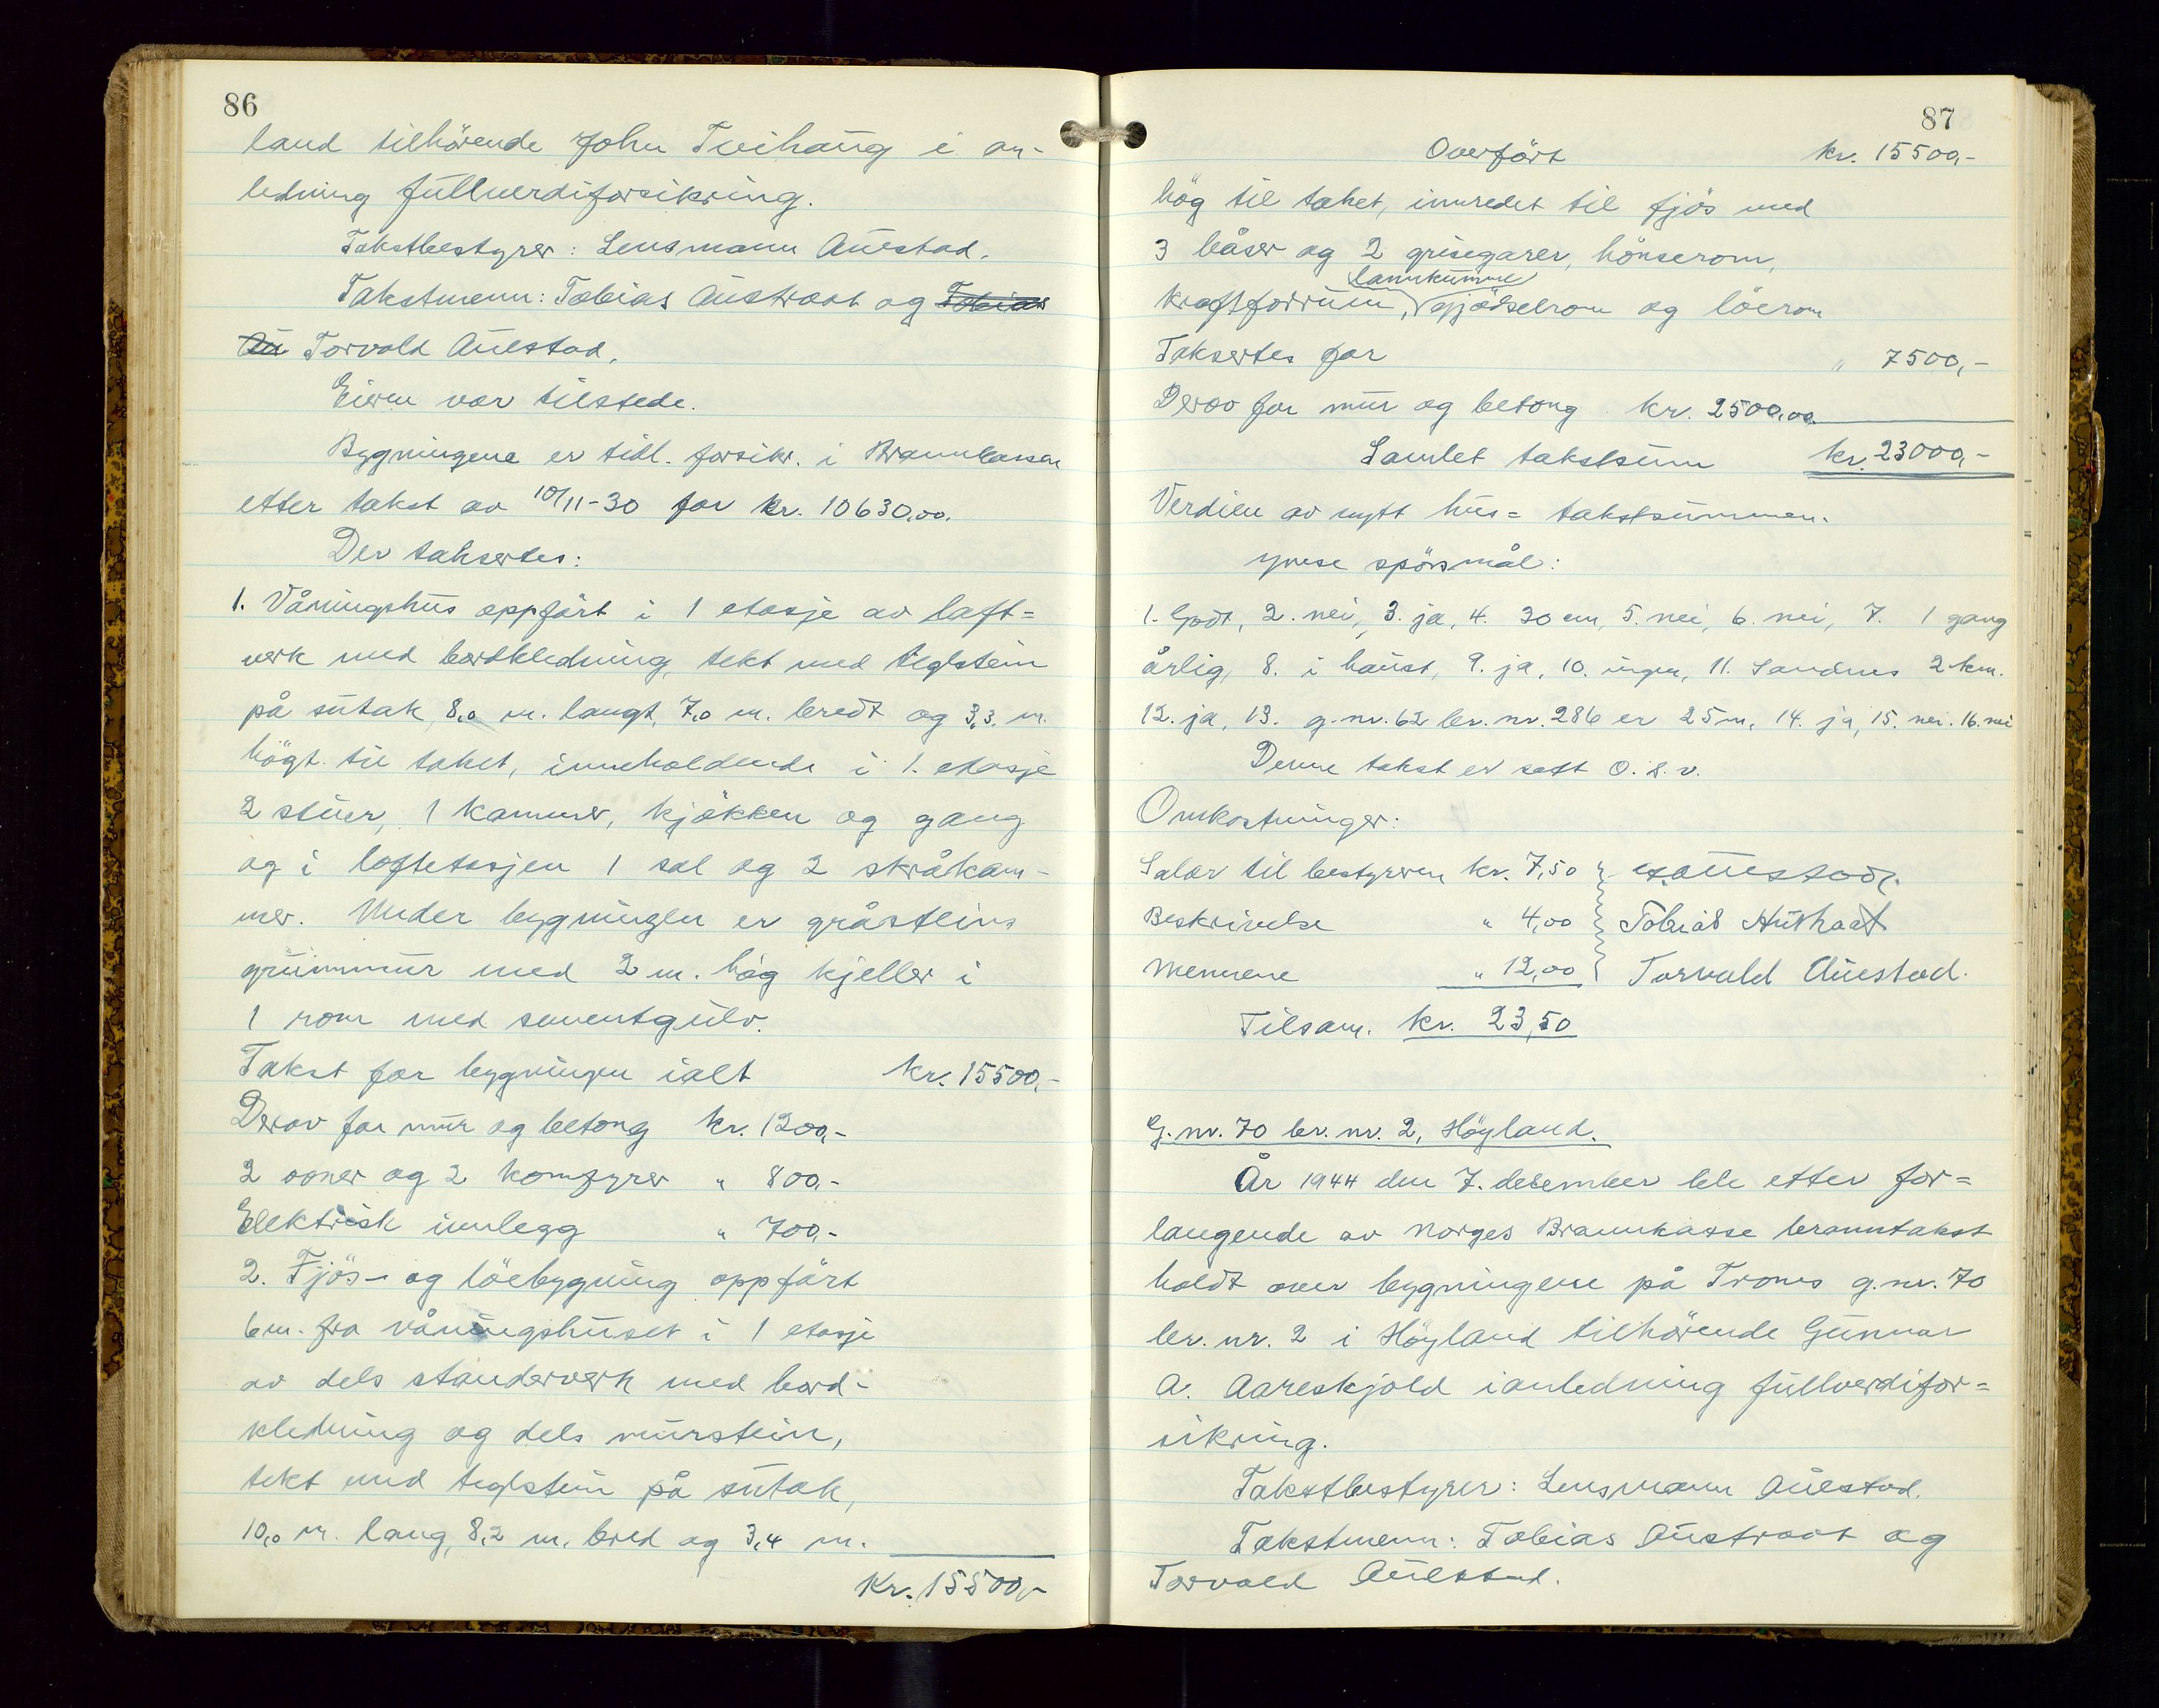 86
land tilhörende John Tveihaug i an-
ledning fullverdiforsikring.
Takstbestyrer: Lensmann Auestad.
Takstmenn: Tobias Austraat og Tobias
Au Torvald Auestad.
Eieren var tilstede.
Bygningene er tidl. forsikr. i Brannkassen
etter takst av 10/11-30 for kr. 10630,00.
Der taksertes:
1. Våningshus oppfört i 1 etasje av laft=
verk med bordkledning, tekt med teglstein
på sutak, 8,0 m. langt, 7,0 m. bredt og 3,3 m.
högt til taket, inneholdende i 1. etasje
2 stuer, 1 kammer, kjökken og gang
og i loftetasjen 1 sal og 2 skråkam-
mer. Under bygningen er gråsteins
grunnmur med 2 m. hög kjeller i
1 rom med sementgulv.
Takst for bygningen ialt kr. 15500,-
Derav for mur og betong kr. 1200,-
2 ovner og 2 komfyrer " 800,-
Elektrisk innlegg " 700,-
2. Fjös- og löebygning oppfört
6 m. fra våningshuset i 1 etasje
av dels standerverk med bord-
kledning og dels murstein,
tekt med teglstein på sutak,
10,0 m. lang, 8,2 m. bred og 3,4 m.
Kr. 15500,-
87
Overfört kr. 15500,-
hög til taket, innredet til fjös med
3 båser og 2 grisegarer, hönserom,
lannkumme
kraftforrum, gjödselrom og löerom
Taksertes for " 7500,-
Derav for mur og betong kr. 2500,00
Samlet takstsum kr. 23000,-
Verdien av nytt hus = takstsummen.
Ymse spörsmål:
1. Godt, 2. nei, 3. ja, 4. 30 cm, 5. nei, 6. nei, 7. 1 gang
årlig, 8. i haust, 9. ja, 10. ingen, 11. Sandnes 2 km.
12. ja, 13. g.nr. 62 br.nr. 286 er 25 m, 14. ja, 15. nei. 16. nei
Denne takst er satt o.s.v.
Omkostninger:
Salær til bestyreren kr. 7,50 Auestad.
Beskrivelse " 4,00 Tobias Austraat
Mennene " 12,00 Torvald Auestad.
Tilsam. kr. 23,50
G.nr. 70 br. nr. 2, Höyland.
År 1944 den 7. desember ble etter for=
langende av Norges Brannkasse branntakst
holdt over bygningene på Trones g.nr. 70
br. nr. 2 i Höyland tilhörende Gunnar
A. Aareskjold ianledning fullverdifor=
sikring.
Takstbestyrer: Lensmann Auestad.
Takstmenn: Tobias Austraat og
Torvald Auestad.